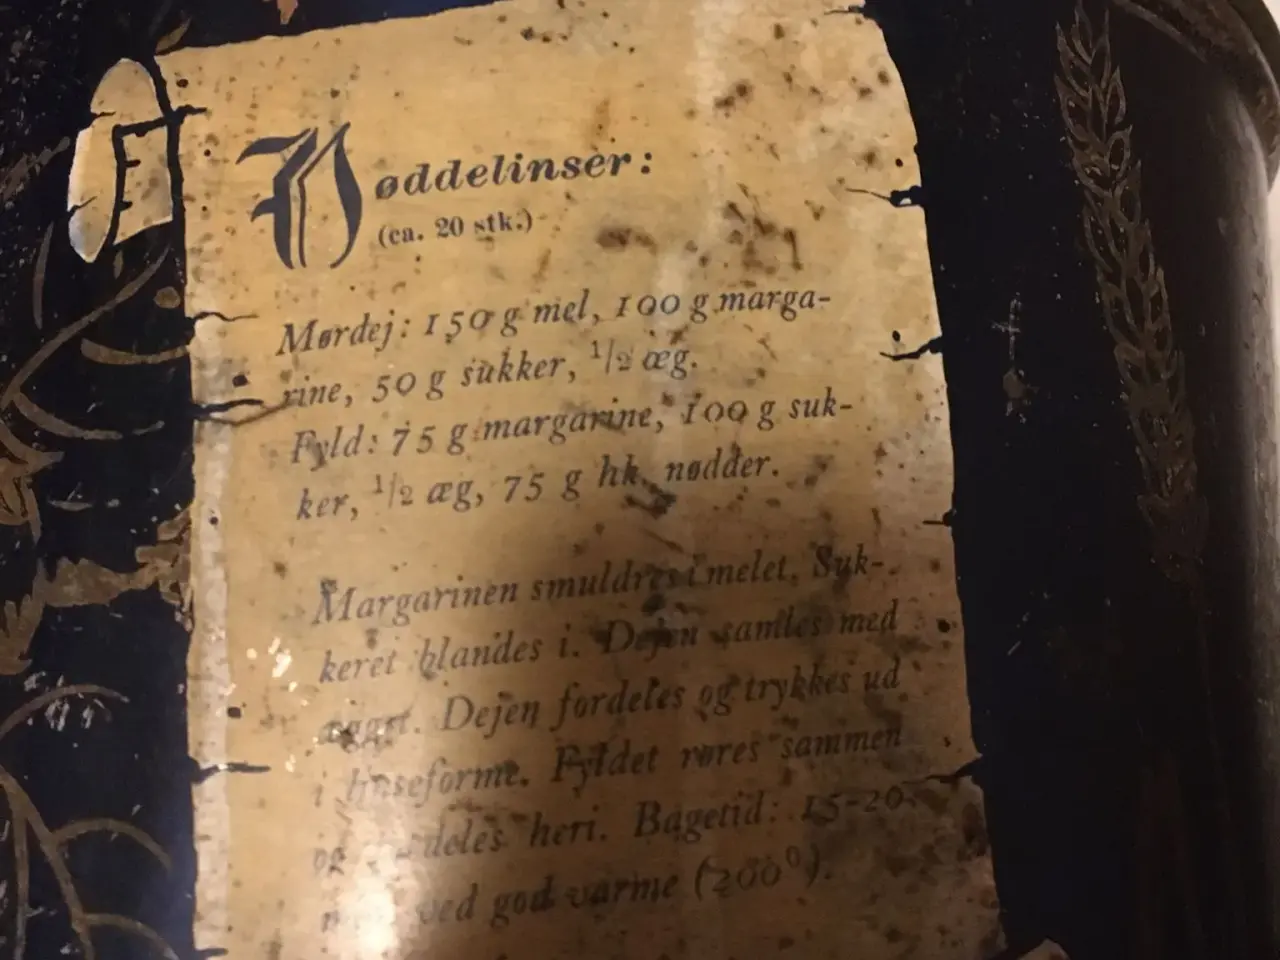 Nøddelinser:
(ca. 20 stk.)
Mørdej: 150 g mel, 100 g marga-
rine, 50 g sukker, 1/2 æg.
Fyld: 75 g margarine, 100 g suk-
ker, 1/2 æg, 75 g hk. nødder.
Margarinen smuldres i melet. Suk-
keret blandes i. Dejen samles med
ægget. Dejen fordeles og trykkes ud
i linseforme. Fyldet røres sammen
og fordeles heri. Bagetid: 15-20
ved god varme (200⁰).